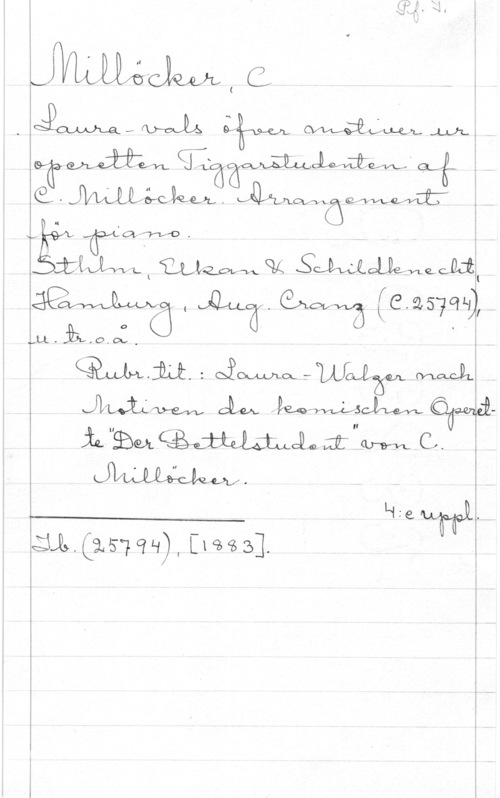 Pf. I.
Millöcker, C
Laura-vals öfver motiver ur
operetten Tiggarstudenten af
C. Millöcker. Arrangement
för piano.
Sthlm, Elkan & Schildknecht,
Hamburg, Aug. Cranz (C.25794),
u.tr.o.å.
Rubr.tit.: Laura-Walzer nach
Motiven der komischen Operet-
te "Der Bettelstudent" von C.
Millöcker.
4:e uppl.
Ib. (25794), [1883].